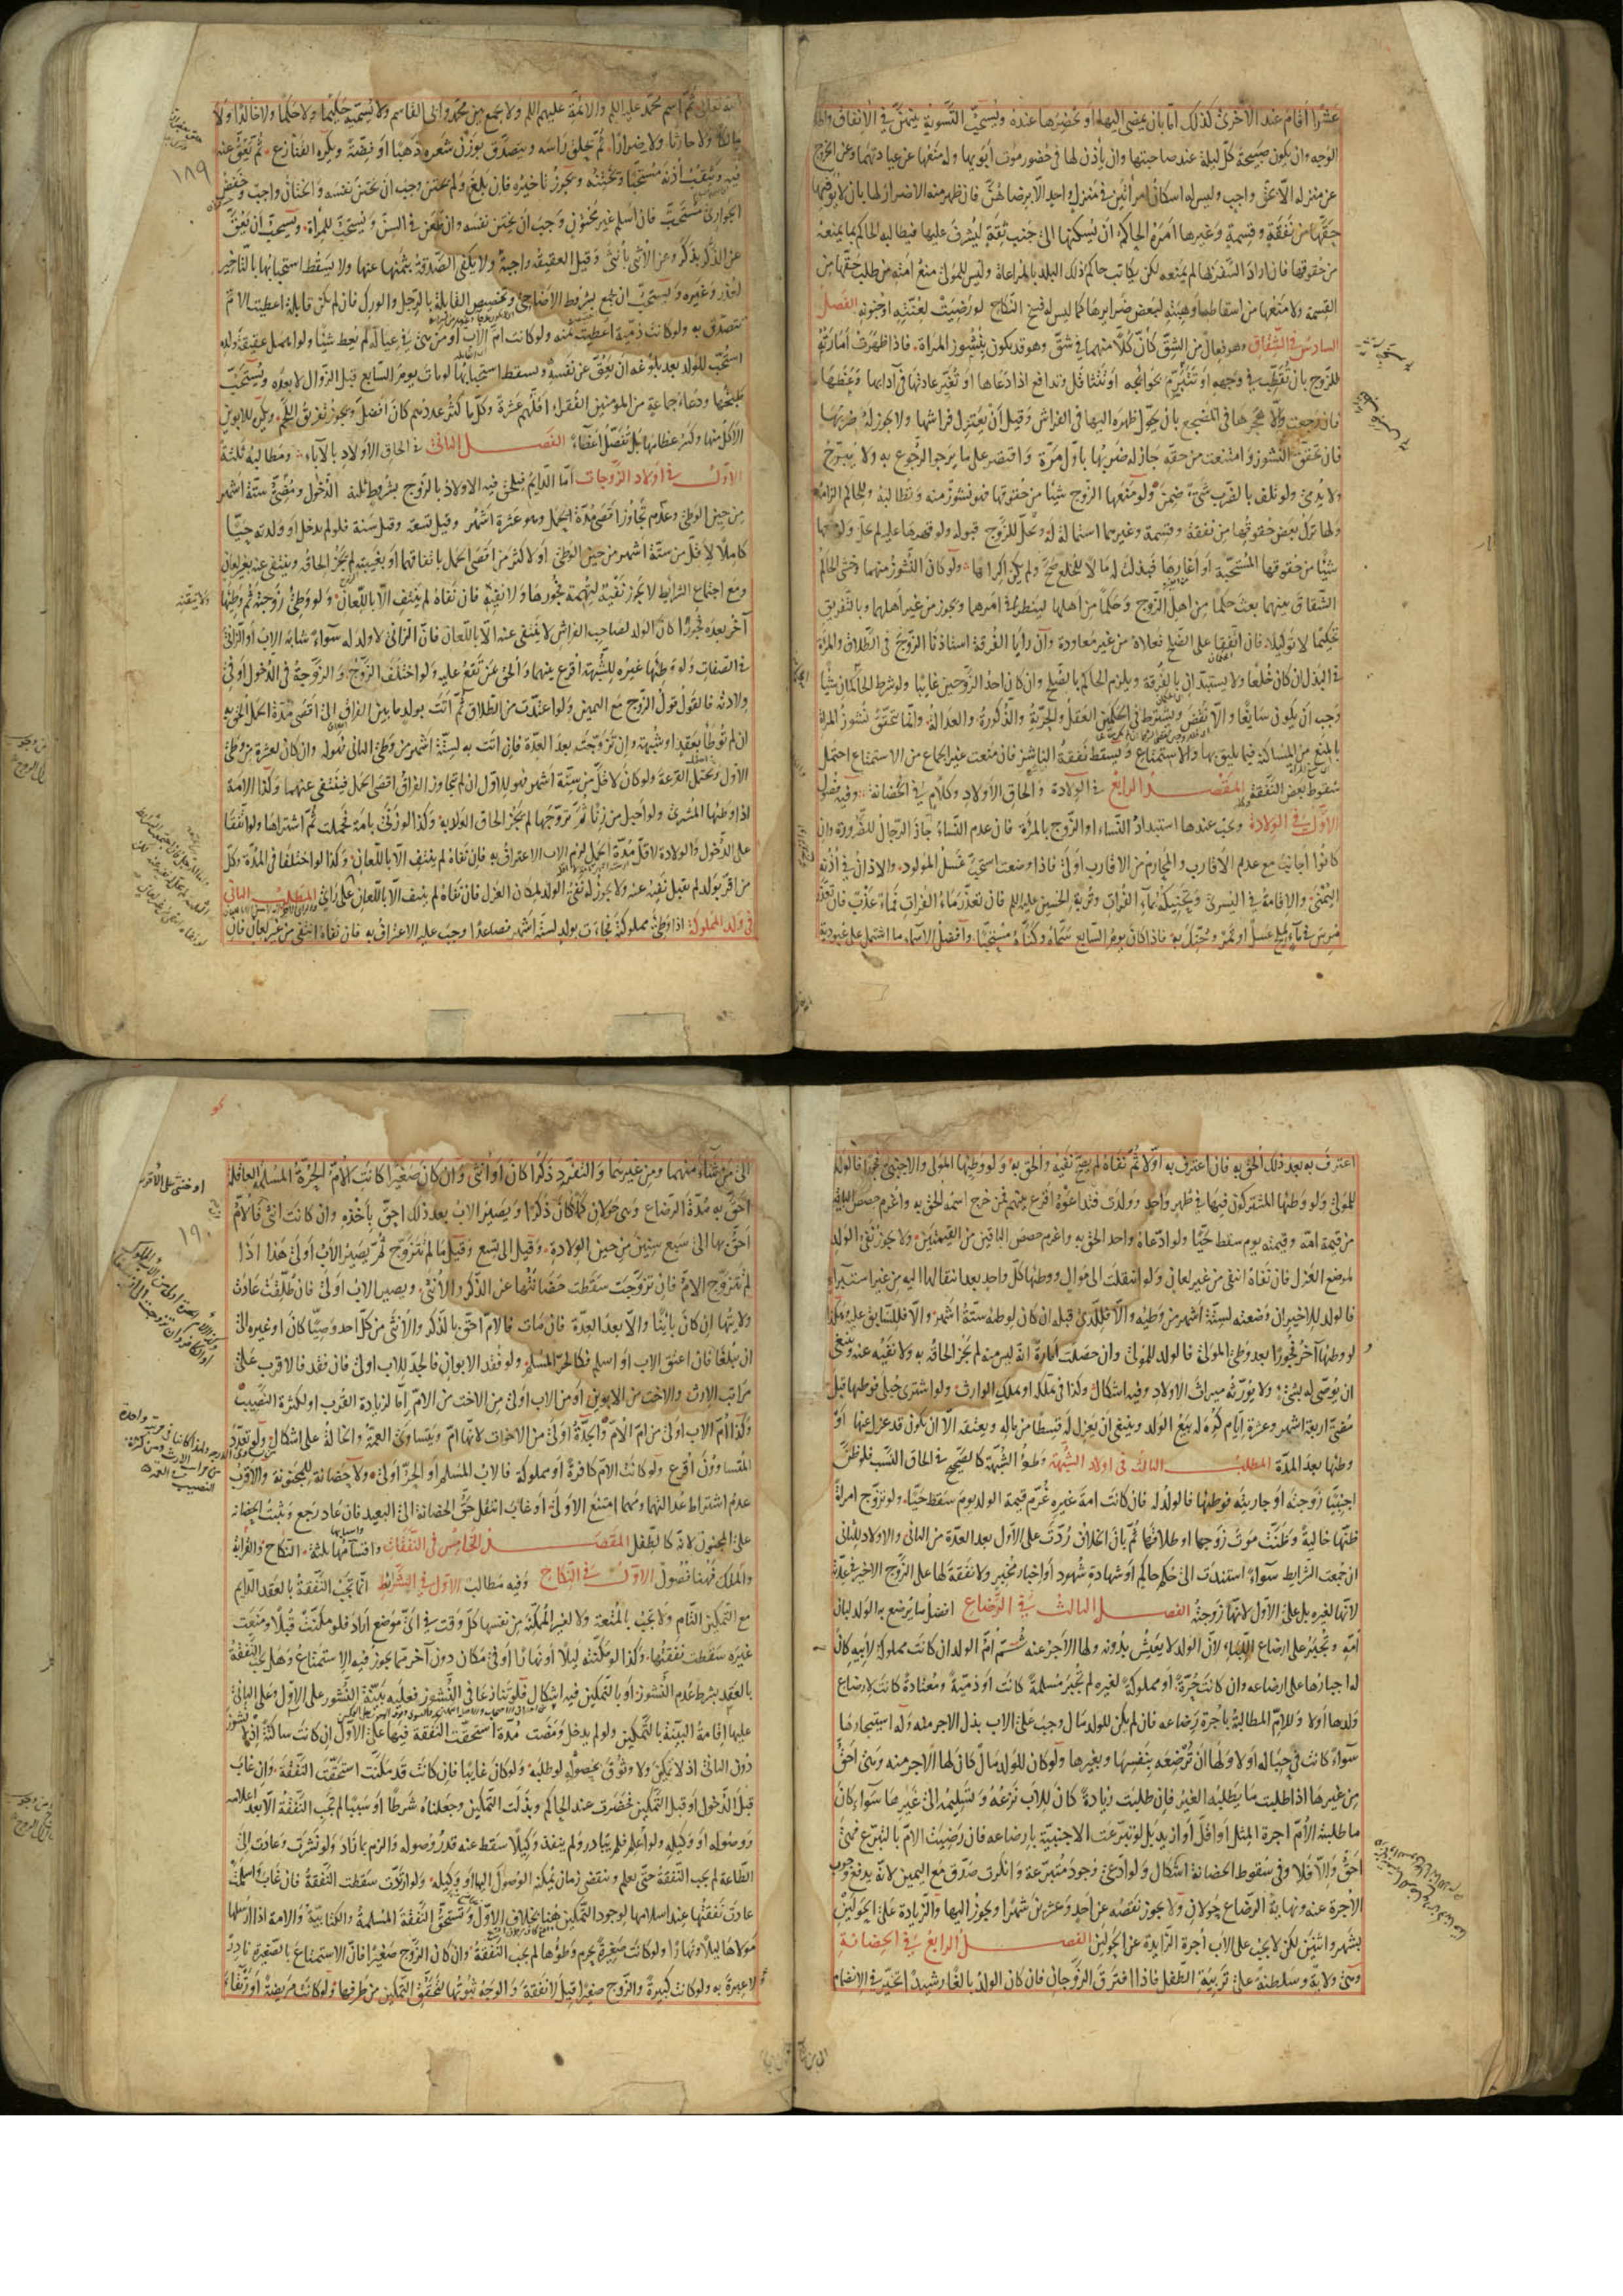 عشرا أقام عند الأخرى كذلك امّا بان يمضى اليها او يحضرها عنده ويستحبّ التّسوية بينهنّ في الانفاق واطلاق
الوجه وان يكون صبيحة كلّ ليلة عند صاحبتها وان يأذن لها في حضور موت أبويها وله منعها عن عيادتهما وعن الخروج
عن منزله الّا بحقّ واجب وليس له اسكان امرأتين في منزل واحد الّا برضاهنّ فان ظهر منه الاضرار لها بان لا يوفيها
حقّها من نفقة وقسمة وغيرها امره الحاكم ان يسكنها الى جنب ثقة ليشرف عليها فيطالبه الحاكم بما يمنعه
من حقوقها فان اراد السّفر بها لم يمنعه لكن يكاتب حاكم ذلك البلد بالمراعاة وليس للمولى منع امته من طلب حقّها من
القسمة ولا منعها من اسقاطها وهبته لبعض ضرايرها كما ليس له فسخ النّكاح لو رضيت لعنّته او جنونه الفصل
السادس في الشقاق وهو فعال من الشّقّ كأنّ كلّا منهما في شقّ وهو قد يكون بنشوز المرأة فاذا ظهرت أمارته
للزّوج بان تقطّب في وجهه او تتبرّم بحوائجه او تتثاقل وتدافع اذا دعاها او تغيّر عادتها في آدابها وعظها
فان رجعت والّا هجرها في المضجع بان يحوّل ظهره اليها في الفراش وقيل أن يعتزل فراشها ولا يجوز له ضربها
فان تحقّق النّشوز وامتنعت من حقّه جاز له ضربها بأوّل مرّة واقتصر على ما يرجو الرّجوع به ولا يبرّح
ولا يدمي ولو تلف بالضّرب شيء ضمن ولو منعها الزّوج شيئا من حقوقها فهو نشوز منه وتطالبه وللحاكم الزامه
ولها ترك بعض حقوقها من نفقة وقسمة وغيرهما استمالة له ويحلّ للزّوج قبوله ولو قهرها عليه لم يحلّ ولو منعها
شيئا من حقوقها المستحبّة او أغارها فبذلت له مالا للخلع صحّ ولم يكن اكراها ولو كان النّشوز منهما وخشى الحاكم
الشّقاق بينهما بعث حكما من اهل الزّوج وحكما من اهلها لينظرا في امرهما ويجوز من غير اهلهما وبالتّفريق
تحكيما لا توكيلا فان اتّفقا على الصّلح فعلاه من غير معاودة وان رأيا الفرقة استاذنا الزّوج في الطّلاق والمرأة
في البذل ان كان خلعا ولا يستبدّان بالفرقة ويلزم الحاكم بالصّلح وان كان احد الزّوجين غايبا ولو شرط الحاكمان شيئا
وجب أن يكون سايغا والّا نقض ويشترط في الحكمين العقل والحرّيّة والذّكورة والعدالة وانّما يتحقّق نشوز المرأة
بالمنع من المساكنة فيما يليق بها والاستمتاع ويسقط نفقة الناشز فان منعت غير الجماع من الاستمتاع احتمل
سقوط بعض النّفقة المقصد الرابع في الولادة والحاق الأولاد وكلام في الحضانة وفيه فصول
الأوّل في الولادة ويجب عندها استبداد النّساء او الزّوج بالمرأة فان عدم النّساء جاز الرّجال للضّرورة وان
كانوا أجانب مع عدم الأقارب والمحارم من الأقارب أولى فاذا وضعت استحبّ غسل المولود والاذان في أذنه
اليمنى والاقامة في اليسرى وتحنيكه بماء الفرات وتربة الحسين عليه السلم فان تعذّر ماء الفرات فماء عذب فان تعذّر
مرس في ماء ملح عسل او تمر وحنّك به فاذا كان يوم السّابع سمّاه وكنّاه مستحبّا وأفضل الاسماء ما اشتمل على عبوديّة
الله تعالى ثم اسم محمّد عليه السلم والائمّة عليهم السلم ولا يجمع بين محمّد وابى القاسم ولا يسميه حكيما ولا حكما ولا خالدا ولا
مالكا ولا حارثا ولا ضرارا ثمّ يحلق راسه ويتصدّق بوزن شعره ذهبا أو فضّة ويكره القنازع ثم يعقّ عنه
فيه ويثقب أذنه مستحبّا ويختنه ويجوز تاخيره فان بلغ ولم يختن وجب ان يختن نفسه والختان واجب وخفض
١٨٩
الجواري مستحبّ فان اسلم غير مختون وجب ان يختن نفسه وان طعن في السنّ ويستحبّ للمرأة ويستحبّ أن يعقّ
عن الذّكر بذكر وعن الأنثى بأنثى وقيل العقيقة واجبة ولا يكفى الصّدقة بثمنها عنها ولا يسقط استحبابها بالتّاخير
لعذر وغيره ويستحبّ ان يجمع بشروط الأضاحى وتخصيص القابلة بالرّجل والورك فان لم يكن قابلة اعطيت الامّ
تتصدّق به ولو كانت ذمّية اعطيت ثمنه ولو كانت امّ الاب او من هى في عياله لم تعط شيئا ولو اهمل عقيقة ولده
استحبّ للولد بعد بلوغه ان يعقّ عن نفسه ويسقط استحبابها لو مات يوم السّابع قبل الزّوال لا بعده ويستحبّ
طبخها ودعاء جماعة من المؤمنين الفقراء اقلّهم عشرة وكلّما كثر عددهم كان افضل ويجوز تفريق اللّحم ويكره للابوين
الأكل منها وكسر عظامها بل تفصّل أعضاء الفصل الثانى في الحاق الأولاد بالآباء ومطالبه ثلثة
الأوّل في اولاد الزّوجات أمّا الدّايم فيلحق فيه الاولاد بالزّوج بشروط ثلثة الدّخول ومضىّ ستّة اشهر
من حين الوطى وعدم تجاوز اقصى مدّة الحمل وهو عشرة اشهر وقيل تسعة وقيل سنة فلو لم يدخل او ولدته حيّا
كاملا لأقلّ من ستّة أشهر من حين الوطى او لأكثر من اقصى الحمل باتفاقهما او بغيبته لم يجز الحاقه وينتفى عنه بغير لعان
ومع اجتماع الشرائط لا يجوز نفيه لتهمة فجورها ولا تيقّنه فان نفاه لم ينتف الّا باللّعان ولو وطئ زوجته ثم وطئها
آخر بعده فجورا كان الولد لصاحب الفراش لا ينتفى عنه الّا باللّعان فانّ الزّانى لا ولد له سواء شابه الاب أو الزّانى
في الصّفات ولو وطئها غيره للشّبهة اقرع بينهما وألحق بمن تقع عليه ولو اختلف الزّوج والزّوجة في الدّخول او في
ولادته فالقول قول الزّوج مع اليمين ولو اعتدّت من الطّلاق ثم أتت بولد ما بين الفراق الى أقصى مدّة الحمل لحق به
ان لم توطأ بعقد او شبهة وان تزوّجت بعد العدّة فان اتت به لستّة اشهر من وطى الثانى فهو له وان كان لعشرة من وطى
الأوّل ويحتمل القرعة ولو كان لأقلّ من ستّة أشهر فهو للاوّل ان لم تتجاوز الفراق اقصى الحمل فينتفى عنهما وكذا الامة
اذا وطئها المشترى ولو احبل من زنا ثمّ تزوّجها لم يجز الحاق الولد به وكذا لو زنى بأمة فحملت ثمّ اشتراها ولو اتّفقا
على الدّخول والولادة لاقلّ مدّة الحمل لزم الاب الاعتراف به فان نفاه لم ينتف الّا باللّعان وكذا لو اختلفا في المدّة وكلّ
من اقرّ بولد لم يقبل نفيه عنه ولا يجوز له نفى الولد لمكان العزل فان نفاه لم ينتف الّا باللّعان على رأى المطلب الثانى
فى ولد المملوكة اذا وطئ مملوكة فجاءت بولد لستّة اشهر فصاعدا وجب عليه الاعتراف به فان نفاه انتفى من غير لعان فان
اعترف به بعد ذلك ألحق به فان اعترف به اوّلا ثمّ نفاه لم يصحّ نفيه وألحق به ولو وطئها المولى والاجنبىّ فجورا فالولد
للمولى ولو وطئها المشتركون فيها في طهر واحد وولدت فتداعوه اقرع بينهم فمن خرج اسمه ألحق به واغرم حصص الباقين
من قيمة امّه وقيمته يوم سقط حيّا ولو ادّعاه واحد الحق به واغرم حصص الباقين من القيمتين ولا يجوز نفى الولد
لموضع العزل فان نفاه انتفى من غير لعان ولو انتقلت الى موال ووطئها كلّ واحد بعد انتقالها اليه من غير استبراء
فالولد للاخير ان وضعته لستّة أشهر من وطئه والّا فللّذى قبله ان كان لوطئه ستّة اشهر والّا فللسّابق عليه وهكذا
لو وطئها آخر فجورا بعد وطى المولى فالولد للمولى وان حصلت امارة انّه ليس منه لم يجز الحاقه به ولا نفيه عنه وينبغى
ان يوصى له بشىء ولا يورّثه ميراث الاولاد وفيه اشكال وكذا في تملّكه او تملك الوارث ولو اشترى حبلى فوطئها قبل
مضىّ اربعة اشهر وعشرة ايّام كره له بيع الولد وينبغى أن يعزل له قسطا من ماله ويعتقه الّا ان يكون قد عزل عنها أو
وطئها بعد المدّة المطلب الثالث فى اولاد الشّبهة وطؤ الشّبهة كالصّحيح في الحاق النّسب فلو ظنّ
اجنبيّة زوجته أو جاريته فوطئها فالولد له فان كانت امة غيره غرم قيمة الولد يوم سقط حيّا ولو تزوّج امرأة
ظنّها خالية وظنّت موت زوجها او طلاقها ثمّ بان الخلاف ردّت على الأوّل بعد العدّة من الثانى والاولاد للثانى
ان جمعت الشرايط سواء استندت الى حكم حاكم أو شهادة شهود او اخبار مخبر ولا نفقة لها على الزّوج الاخير في عدّته
لانّها لغيره بل على الأوّل لانّها زوجته الفصل الثالث في الرّضاع افضل ما يرضع به الولد لبان
امّه وتجبر على ارضاع اللّباء لانّ الولد لا يعيش بدونه ولها الاجر عنه ثمّ أمّ الولد ان كانت مملوكة لأبيه كان
له اجبارها على ارضاعه وان كانت حرّة او مملوكة لغيره لم تجبر مسلمة كانت أو ذمّيّة ومعتادة كانت لارضاع
ولدها أو لا وللامّ المطالبة بأجرة رضاعه فان لم يكن للولد مال وجب على الاب بذل الاجر منه وله استيجارها
سواء كانت في حباله أو لا ولها أن ترضعه بنفسها وبغيرها ولو كان للولد مال كان لها الأجر منه وهى احقّ
من غيرها اذا طلبت ما يطلبه الغير فان طلبت زيادة كان للاب نزعه وتسليمه الى غيرها سواء كان
ما طلبته الأمّ اجرة المثل أو اقلّ أو ازيد بل لو تبرّعت الاجنبيّة بارضاعه فان رضيت الامّ بالتبرّع فهى
احقّ والّا فلا وفى سقوط الحضانة اشكال ولو ادّعى وجود متبرّعة وانكرت صدّق مع اليمين لانّه يدفع وجوب
الأجرة عنه ونهاية الرّضاع حولان ولا يجوز نقصه عن احد وعشرين شهرا ويجوز اليها والزّيادة على الحولين
بشهر واثنين لكن لا يجب على الأب أجرة الزّايدة عن الحولين الفصل الرابع في الحضانة
وهى ولاية وسلطنة على تربية الطفل فاذا افترق الزّوجان فان كان الولد بالغا رشيدا تخيّر في الانضمام
الى من شاء منهما ومن غيرهما والتفرّد ذكرا كان أو أنثى وان كان صغيرا كانت الأمّ الحرّة المسلمة العاقلة
احقّ به مدّة الرّضاع وهى حولان كملا ان كان ذكرا ويصير الاب بعد ذلك احقّ بأخذه وان كانت انثى فالأمّ
١٩٠
أحقّ بها الى سبع سنين من حين الولادة وقيل الى تسع وقيل ما لم تتزوّج ثمّ يصير الأب أولى هذا اذا
لم تتزوّج الامّ فان تزوّجت سقطت حضانتها عن الذّكر والأنثى ويصير الاب اولى فان طلّقت عادت
ولايتها ان كان بائنا والّا بعد العدّة فان مات فالامّ احقّ بالذّكر والأنثى من كلّ احد وصيّا كان او غيره الى
ان يبلغا فان اعتق الاب أو اسلم فكالحرّ المسلم ولو فقد الابوان فالجدّ للاب اولى فان فقد فالاقرب على
مراتب الارث والاخت من الابوين أو من الاب اولى من الاخت من الامّ إمّا لزيادة القرب او لكثرة النّصيب
وكذا أمّ الأب اولى من امّ الأمّ والجدّة اولى من الاخوات لانّها امّ ويتساوى العمّة والخالة على اشكال ولو تعدّد
المتساوون أقرع ولو كانت الامّ كافرة أو مملوكة فالاب المسلم أو الحرّ اولى ولا حضانة للمجنونة والاقرب
عدم اشتراط عدالتها ومهما امتنع الأولى أو غاب انتقل حقّ الحضانة الى البعيد فان عاد رجع وتثبت الحضانة
على المجنون لانّه كالطّفل المقصد الخامس فى النّفقات واقسامها ثلثة النّكاح والقرابة
والملك فههنا فصول الأوّل في النّكاح وفيه مطالب الأوّل في الشّرائط انّما تجب النّفقة بالعقد الدّايم
مع التّمكين التّام ولا تجب بالمتعة ولا لغير الممكّنة من نفسها كلّ وقت في اىّ موضع أراد فلو مكّنت قبلا ومنعت
غيره سقطت نفقتها وكذا لو مكّنته ليلا أو نهارا أو في مكان دون آخر ممّا يجوز فيه الاستمتاع وهل تجب النّفقة
بالعقد بشرط عدم النّشوز أو بالتّمكين فيه اشكال فلو تنازعا في النّشوز فعليه بيّنة النّشوز على الأوّل وعلى الثانى
عليها اقامة البيّنة بالتّمكين ولو لم يدخل ومضت مدّة استحقّت النّفقة فيها على الأوّل ان كانت ساكنة
دون الثانى اذ لا تمكين ولا وثوق بحصوله لو طلبه ولو كان غايبا فان كانت قد مكّنت استحقّت النّفقة وان غاب
قبل الدّخول أو قبل التّمكين فحضرت عند الحاكم وبذلت التّمكين وجعلناه شرطا أو سببا لم تجب النّفقة الّا بعد اعلامه
ووصوله او وكيله ولو أعلم فلم يبادر ولم ينفذ وكيلا سقط عنه قدر وصوله والزم بما زاد ولو نشزت وعادت الى
الطّاعة لم يجب النّفقة حتّى يعلم وينقضى زمان يمكنه الوصول اليها او وكيله ولو ارتدّت سقطت النّفقة فان غاب واسلمت
عادت نفقتها عند اسلامها لوجود التّمكين هنا بخلاف الأوّل وتستحقّ النّفقة المسلمة والكتابيّة والامة اذا ارسلها
مولاها ليلا ونهارا ولو كانت صغيرة يحرم وطؤها لم يجب النّفقة وان كان الزّوج صغيرا فانّ الاستمتاع بالصّغيرة نادر
لا عبرة به ولو كانت كبيرة والزّوج صغيرا قيل لا نفقة والوجه ثبوتها لتحقّق التّمكين من طرفها ولو كانت مريضة او رتقاء